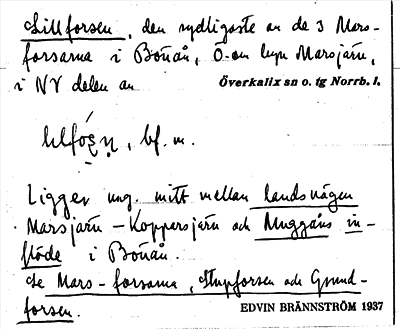 Lillforsen, den sydligaste av de 3 Mars-
forsarna i Bönån, Ö. om byn Marsjärv,
i NV delen av Överkalix sn o. tg Norrb. l.
bf. m.
Ligger ung. mitt mellan landsvägen
Marsjärv – Koppersjärv och Muggåns in-
flöde i Bönån.
Se Mars-forsarna, Stupforsen och Grund-
forsen.
EDVIN BRÄNNSTRÖM 1937